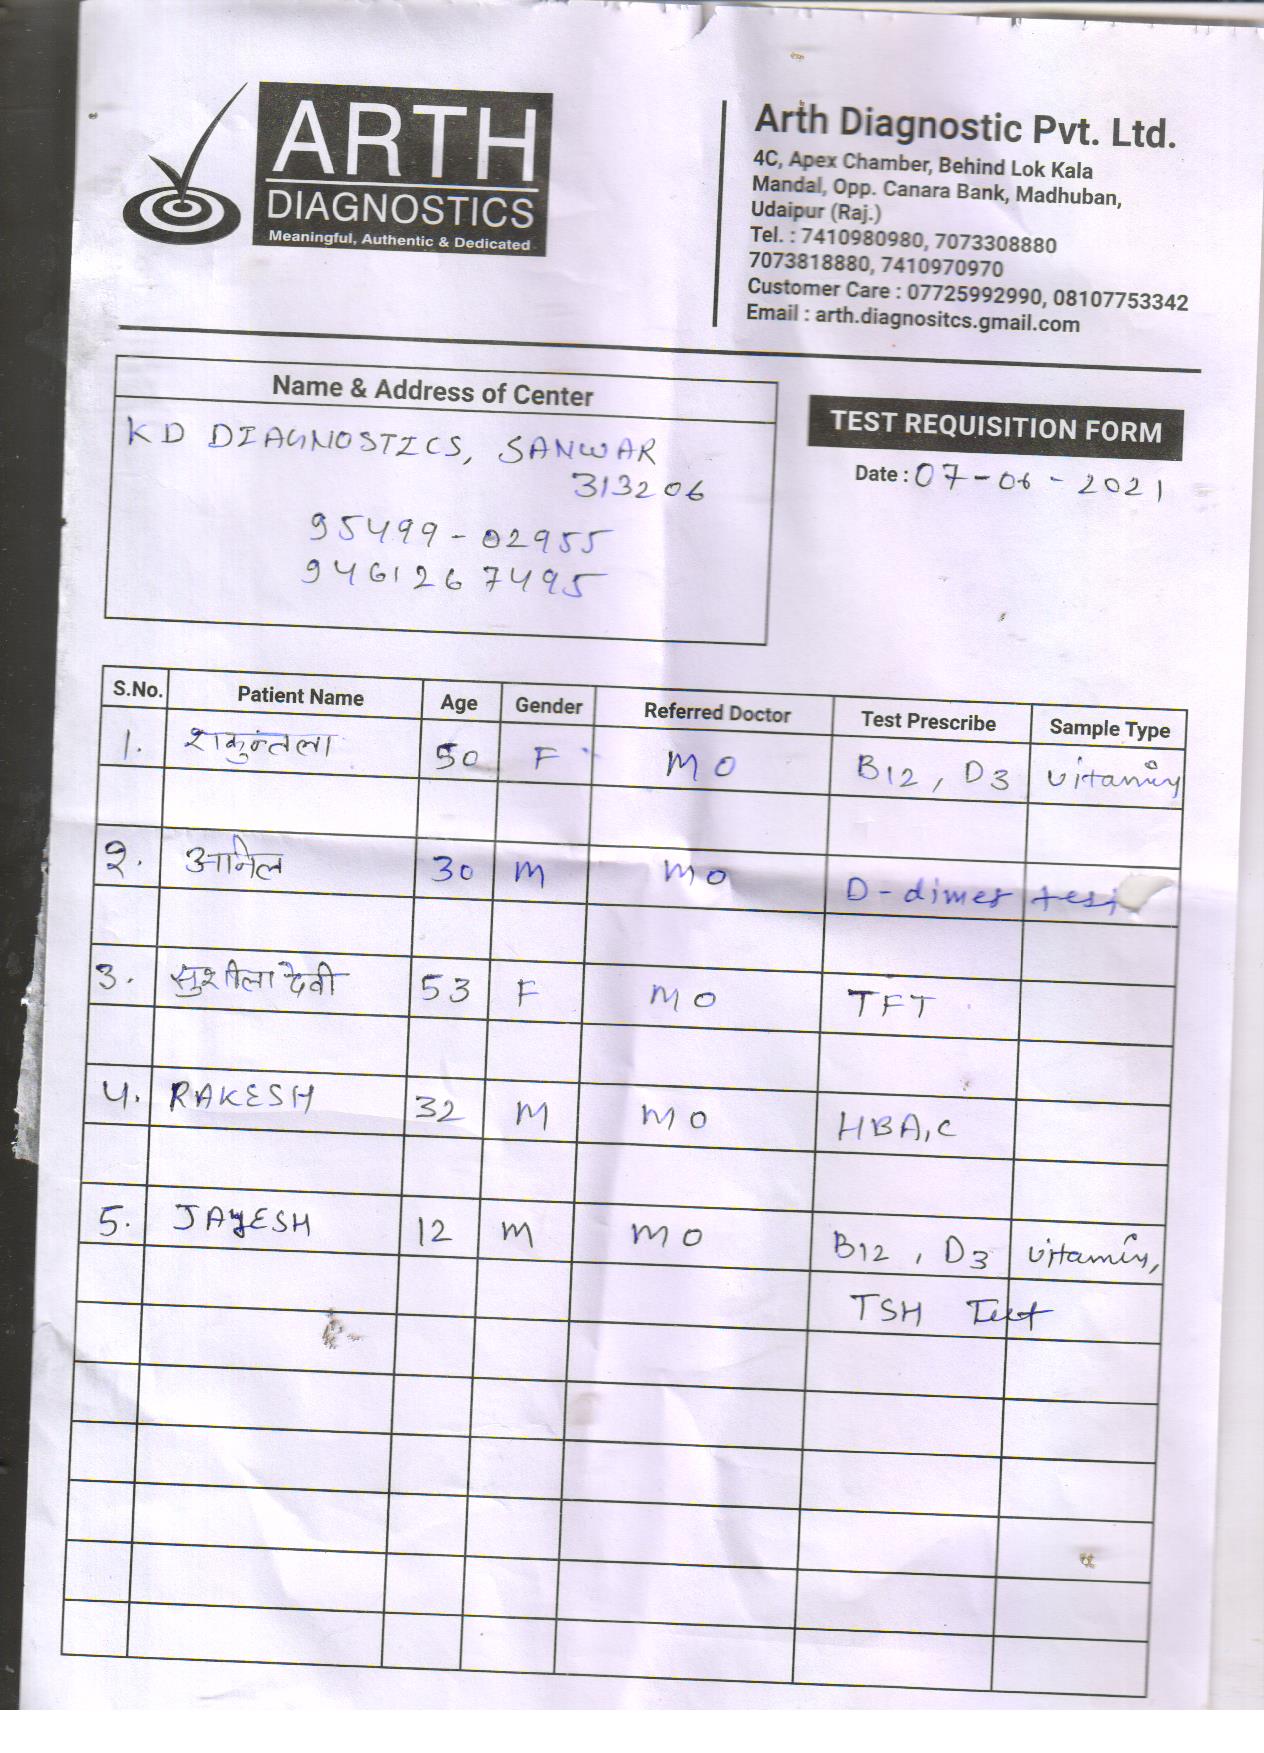 ARTH
DIAGNOSTICS
Meaningful, Authentic & Dedicated
Arth Diagnostic Pvt. Ltd.
4C, Apex Chamber, Behind Lok Kala
Mandal, Opp. Canara Bank, Madhuban,
Udaipur (Raj.)
Tel. : 7410980980, 7073308880
7073818880, 7410970970
Customer Care : 07725992990, 08107753342
Email : arth.diagnositcs.gmail.com
Name & Address of Center
KD DIAGNOSTICS, SANWAR
313206
95499-02955
9461267495
TEST REQUISITION FORM
Date : 07-06-2021
S.No. Patient Name Age Gender Referred Doctor Test Prescribe Sample Type
1. शकुन्तला 50 F MO B12, D3 vitamin
2. अनिल 30 M MO D-dimer test
3. सुशीला देवी 53 F MO TFT
4. RAKESH 32 M MO HBA1C
5. JAYESH 12 M MO B12, D3 vitamin,
TSH Test